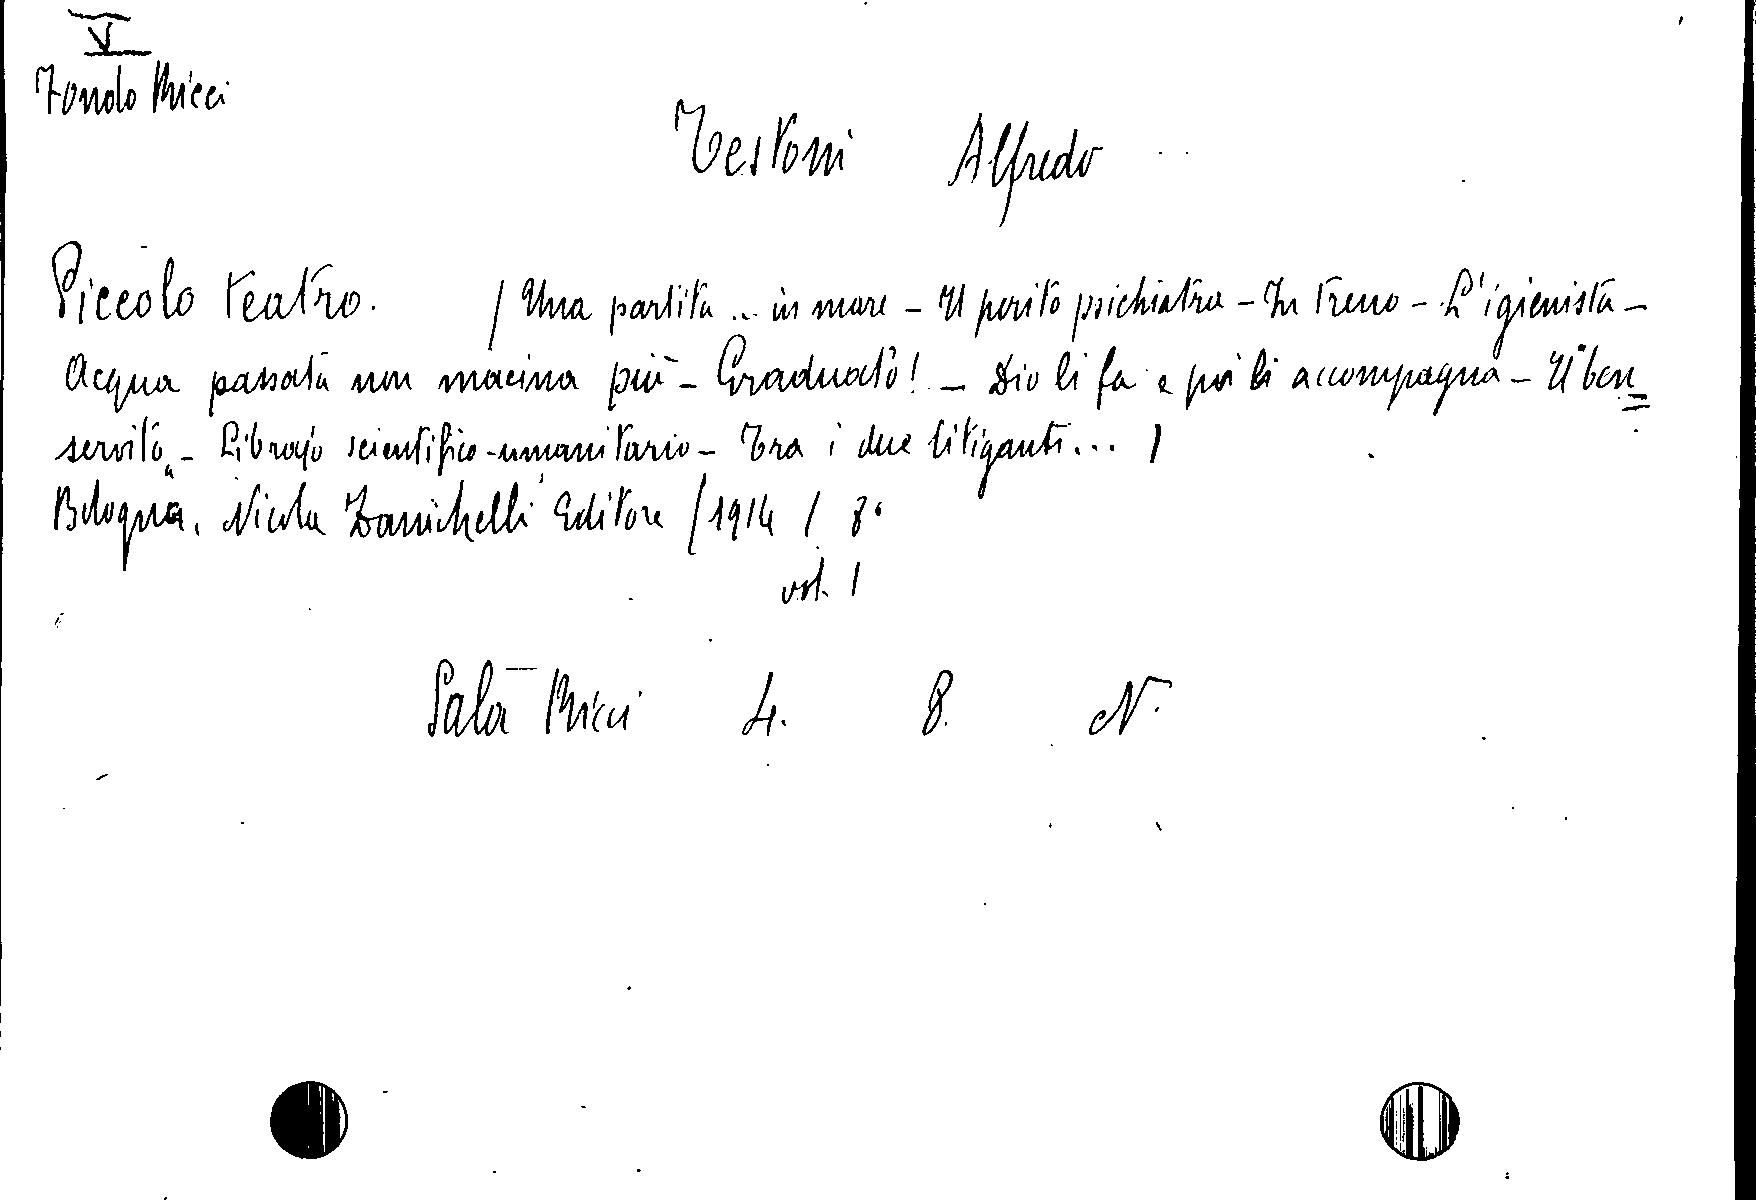 V
Fondo Ricci
Testoni Alfredo
Piccolo teatro. / Una partita .. in mare - Il perito psichiatra - In treno - L'igienista -
Acqua passata non macina più - Graduato! - Dio li fa e poi li accompagna - Il "ben=
servito" - Librajo scientifico-umanitario - Tra i due litiganti... /
Bologna, Nicola Zanichelli Editore / 1914 / 8°
vol. 1
Sala Ricci 4. 8. N.